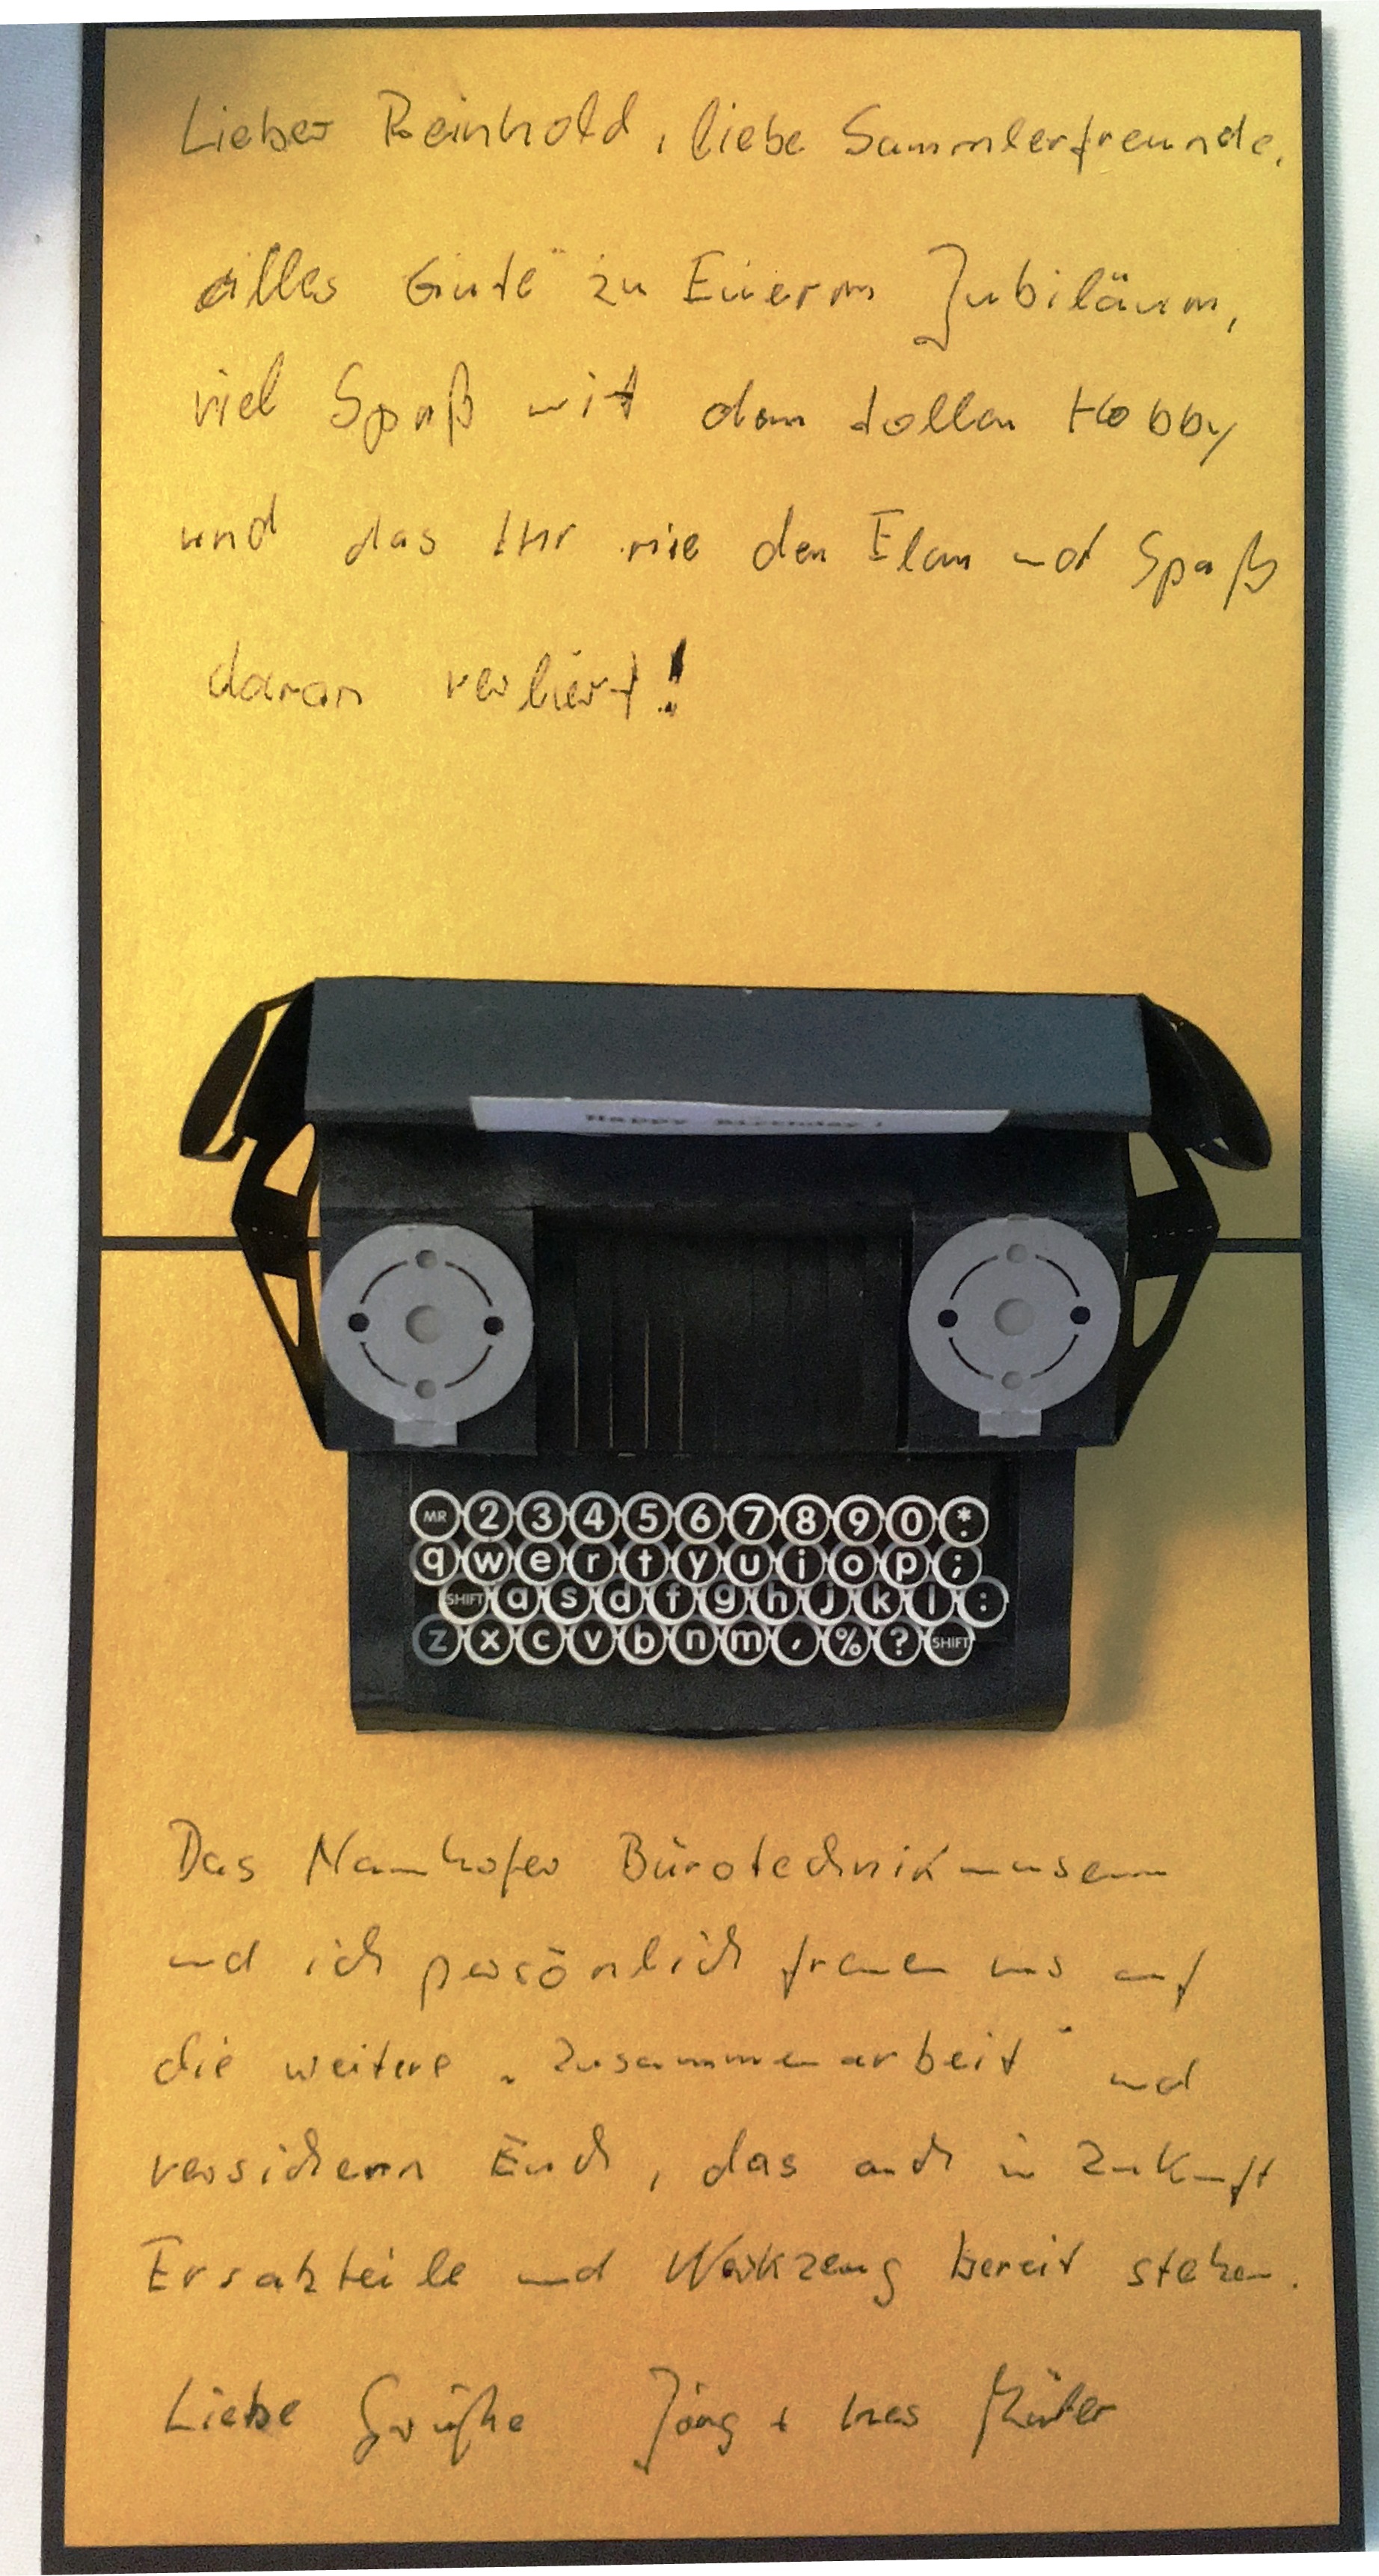 Lieber Reinhold, liebe Sammlerfreunde,
alles Gute zu Euerm Jubiläum,
viel Spaß mit dem tollen Hobby
und das Ihr nie den Elan und Spaß
daran verliert!
Happy Birthday!
MR 2 3 4 5 6 7 8 9 0 *
q w e r t y u i o p ;
SHIFT a s d f g h j k l :
z x c v b n m , % ? SHIFT
Das Naunhofer Bürotechnikmuseum
und ich persönlich freuen uns auf
die weitere „Zusammenarbeit" und
versichern Euch, das auch in Zukunft
Ersatzteile und Werkzeug bereit stehen.
Liebe Grüße Jörg + Ines Müller